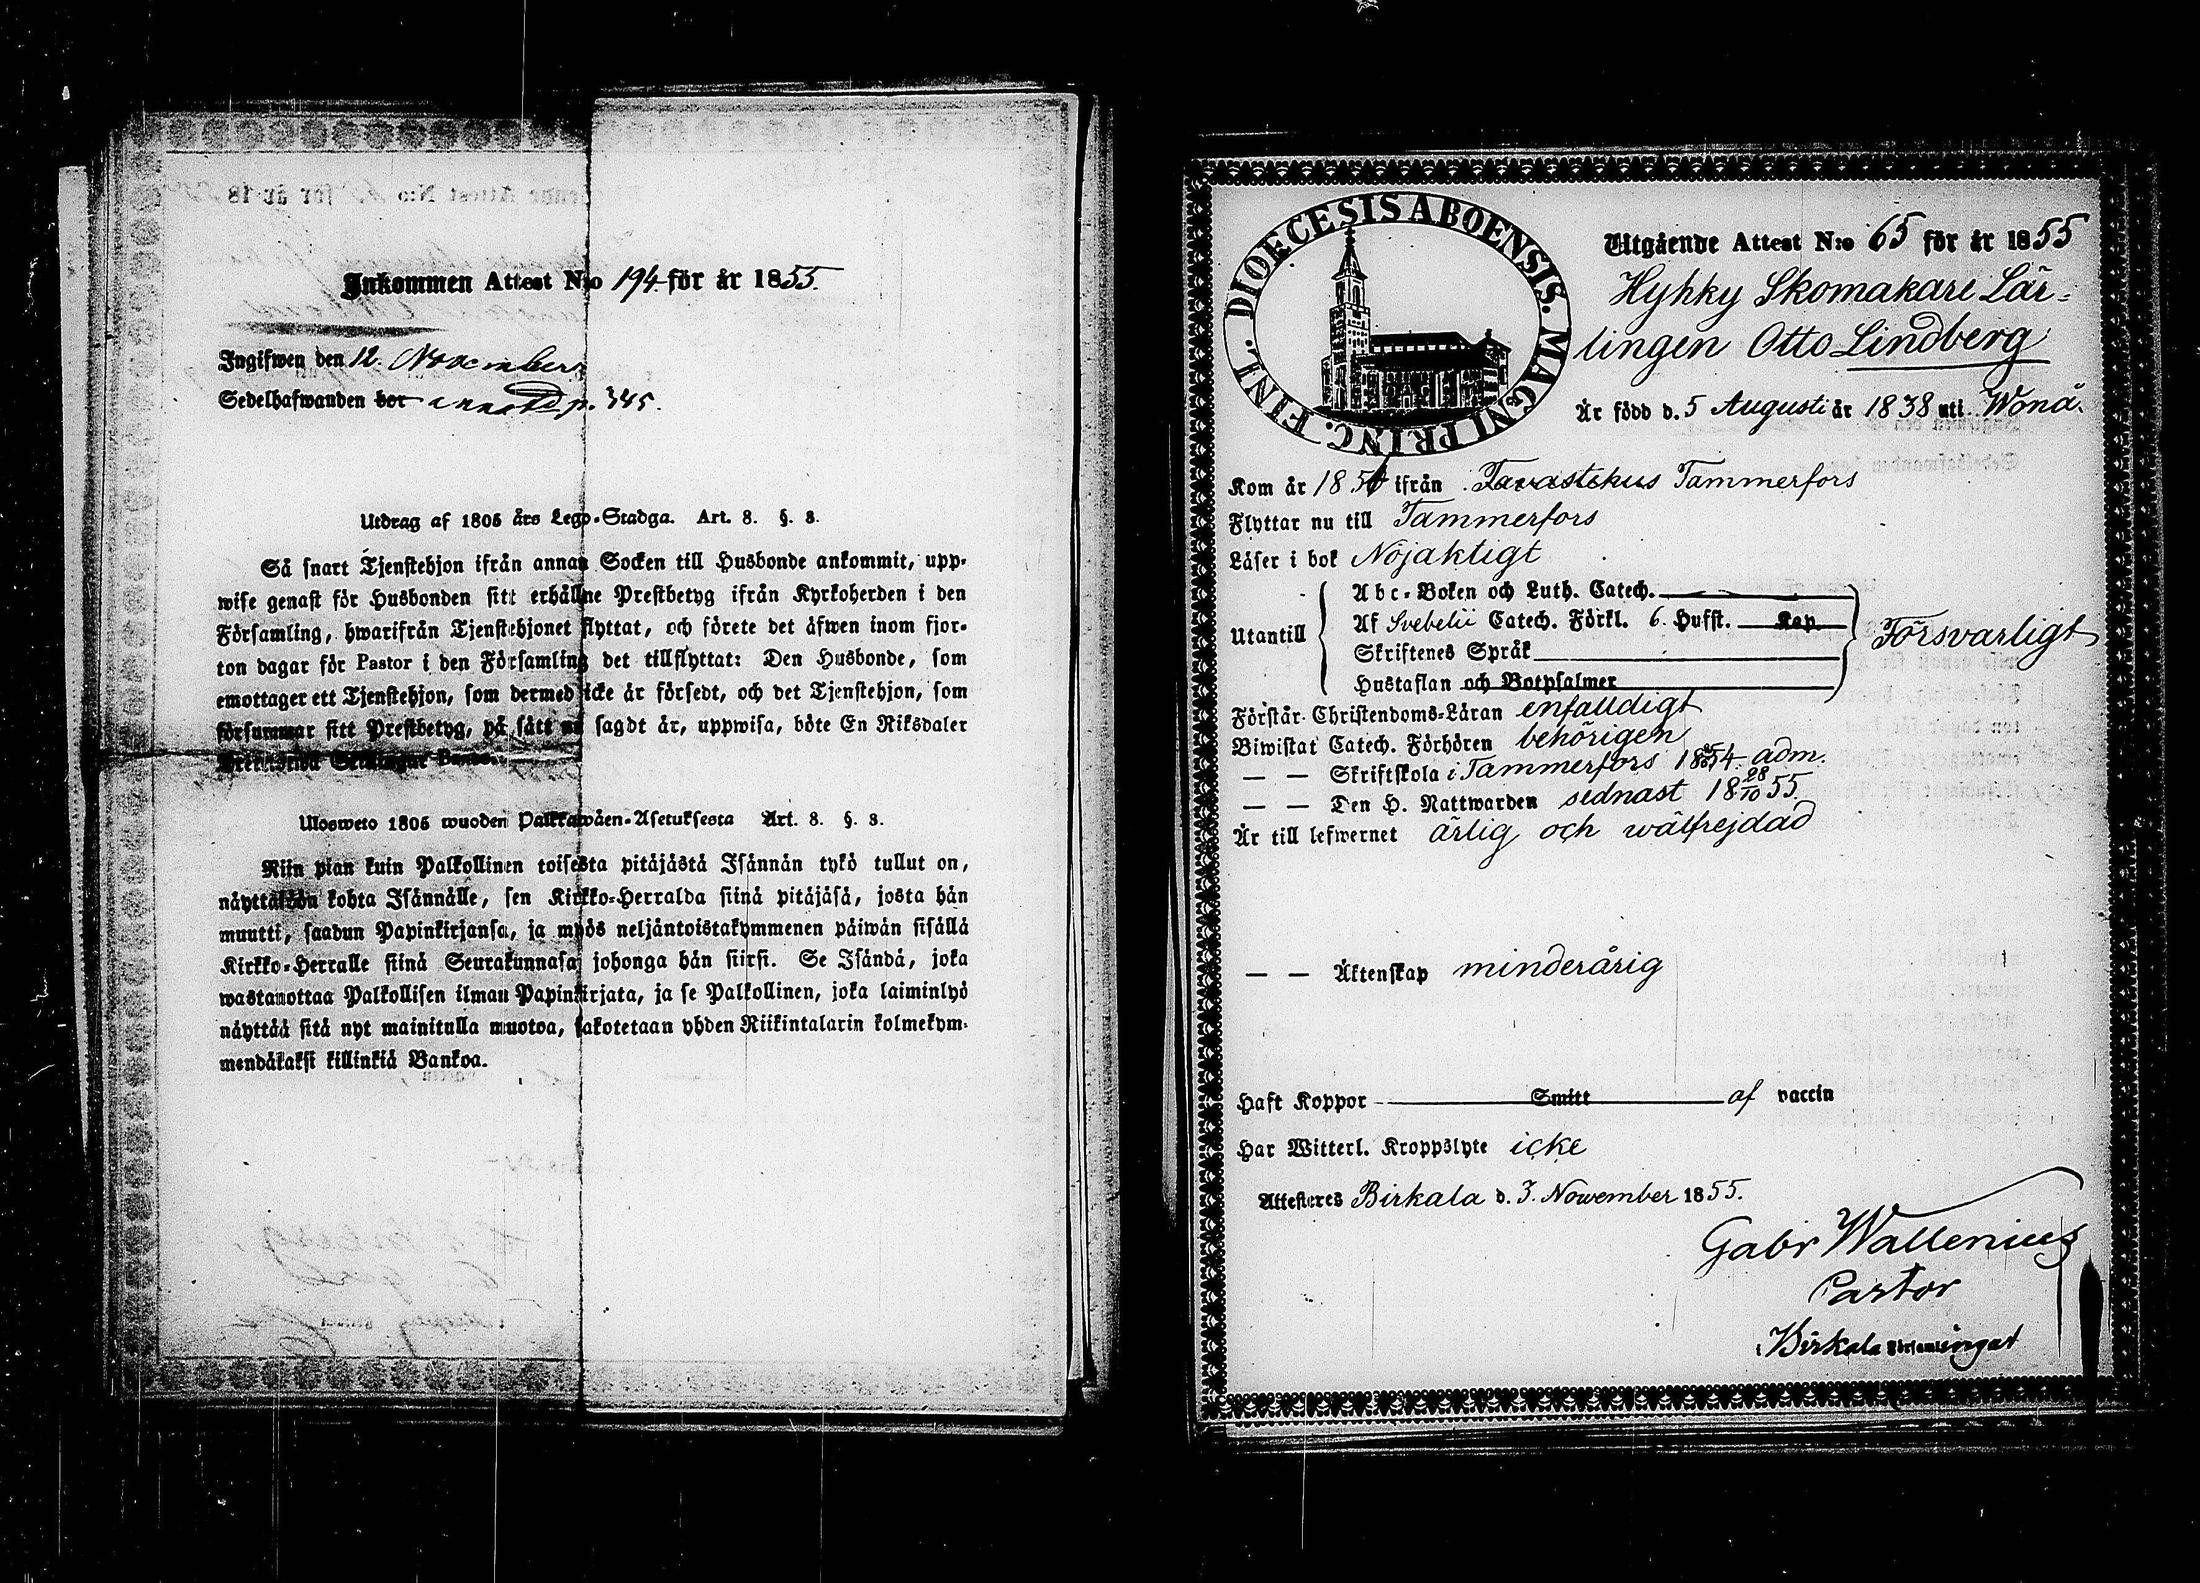 Inkommen Attest N:o 194 för år 1855.
Ingifwen den 12. November
Sedelhafwanden bor annotd p. 345.
Utdrag af 1805 års Lego-Stadga. Art. 8. §. 8.
Så snart Tjenstehjon ifrån annan Socken till Husbonde ankommit, upp-
wise genast för Husbonden sitt erhållne Prestbetyg ifrån Kyrkoherden i den
Församling, hwarifrån Tjenstehjonet flyttat, och förete det äfwen inom fjor-
ton dagar för Pastor i den Församling det tillflyttat: Den Husbonde, som
emottager ett Tjenstehjon, som dermed icke är försedt, och det Tjenstehjon, som
försummar sitt Prestbetyg, på sätt nu sagdt är, uppwisa, böte En Riksdaler
Banco.
Ulosweto 1805 wuoden Palkkawäen-Asetuksesta Art. 8. §. 8.
Niin pian kuin Palkollinen toisesta pitäjästä Isännän tykö tullut on,
näyttäköön kohta Isännälle, sen Kirkko-Herralda siinä pitäjäsä, josta hän
muutti, saadun Papinkirjansa, ja myös neljäntoistakymmenen päiwän sisällä
Kirkko-Herralle siinä Seurakunnasa johonga hän siirsi. Se Isändä, joka
wastanottaa Palkollisen ilman Papinkirjata, ja se Palkollinen, joka laiminlyö
näyttää sitä nyt mainitulla muotoa, sakotetaan yhden Riikintalarin kolmekym-
mendäkaksi killinkiä Bankoa.
DIOECESIS ABOENSIS. MAGNI PRINC. FINL.
Utgående Attest N:o 65 för år 1855
Hyhky Skomakare Lär-
lingen Otto Lindberg
Är född d. 5 Augusti år 1838 uti Wånå.
Kom år 1854 ifrån Tavastehus Tammerfors
Flyttar nu till Tammerfors
Läser i bok Nöjaktigt
Utantill
Abc-Boken och Luth. Catech.
Af Svebelii Catech. Förkl. 6. Hufst. Kap.
Skriftenes Språk
Hustaflan och Botpsalmer
Försvarligt
Förstår Christendoms-Läran enfaldigt
Biwistat Catech. Förhören behörigen
— — Skriftskola i Tammerfors 1854. adm.
— — Den H. Nattwarden sednast 18 28/10 55.
Är till lefwernet ärlig och wälfrejdad
— — Äktenskap minderårig
Haft Koppor Smitt af vaccin
Har Witterl. Kroppslyte icke
Attesteres Birkala d. 3. November 1855.
Gabr Wallenius
Pastor
i Birkala Församlingat